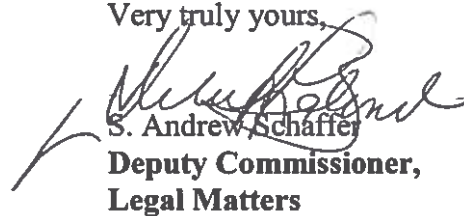 Very truly yours,
S. Andrew Schaffer
Deputy Commissioner,
Legal Matters